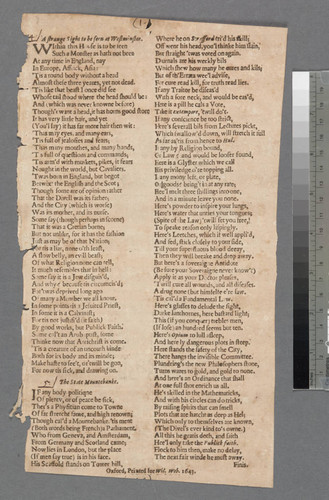 (1)
A strange Sight to be seen at Westminster.
Within this House is to be seen
Such a Monster as hath not been
At any time in England, nay
In Europe, Affrick, Asia:
'Tis a round body without a head
Almost these three yeares, yet not dead.
'Tis like that beast I once did see
Whose tail stood where the head should be;
And (which was never knowne before)
Though't want a head, it has horns good store
It has very little hair, and yet
(You'l say) it has far more hair then wit:
That has many eyes, and many eares,
'Tis full of jealousies and feares;
'Thas many mouthes, and many hands,
'Tis full of questions and commands;
'Tis arm'd with muskets, pikes, it feares
Nought in the world, but Cavaliers.
Twas born in England, but begot
Betwixt the English and the Scot;
Though some are of opinion rather
That the Divell was its father;
And the City (which is worse)
Was its mother, and its nurse.
Some say (though perhaps in scorne)
That it was a Cretian borne;
But not unlike, for it has the fashion
Just as may be of that Nation;
For it's a lier, nine ofs feast,
A slow belly, an evill beast;
Of what Religion none can tell,
It much resembles that in hell:
Some say it is a Jew disguis'd,
And why? because its circumcis'd;
For 'twas deprived long ago
Of many a Member we all know.
In some points it's a Jesuited Priest,
In some it is a Calvinist;
For tis not justifi'd (it saith)
By good works, but Publick Faith.
Some call't an Arch-Popist, some
Thinke now that Antichrist is come.
'Tis a creature of an uncouth kinde
Both for its body and its minde;
Make haste to see't, 'twill be gon,
For now tis sick, and drawing on.
The State Mountebanke.
If any body politique
Of plenty, or of peace be sick,
They's a Physician come to Towne
Of far fetcht fame, and high renown;
Though call'd a Mountebanke, 'tis meet
(Both words being French) a Parliament,
Who from Geneva, and Amsterdam,
From Germany and Scotland came;
Now lies in London, but the place
(If men say true) is in his face.
His Scaffold stands on Tower hill,
Where he on Strafford tri'd his skill;
Off went his head, you'l thinke him slain,
But straight 'twas voted on again.
Diurnals are his weekly bils
Which shew how many he cures and kils;
But of th'Errata wee'l advise,
For cure read kill, for truth read lies.
If any Traitor be diseas'd
With a sore neck, and would be eas'd,
Here is a pill he cals a Vote,
Take it extempore, 'twill do't.
If any conscience be too strict,
Here's severall bils from Lectures pickt,
Which swallow'd down, will stretch it full
As far as 'tis from hence to Hull.
If any by Religion bound,
Or Law; and would be looser found,
Here is a Glyster which we call
His priviledge o're topping all.
If any mony left, or plate,
Or goods (or being't) at any rate,
Hee'l melt three shillings into one,
And in a minute leave you none.
Here's powder to inspire your lungs,
Here's water that unties your tongues;
(Spite of the Law; 'twill set you free)
To speake treason only lispingly.
Here's Leeches, which if well appli'd,
And fed, stick closely to your side,
Till your superfluous blood decay,
Then they will breake and drop away.
But here's a soveraigne Antidote
(Be sure your Soveraigne never know't)
Apply it as your Doctor please,
'Twill cure all wounds, and all diseases.
A drug none (but himselfe e're saw,
'Tis call'd a Fundamentall Law.
Here's glasses to delude the sight,
Darke lanthornes, here bastard light;
This (if you conquer) trebles men,
(If lose) an hundred seems but ten.
Here's opium to lull asleep,
And here by dangerous plots to sleep.
Here stands the safety of the City,
There hangs the invisible Committee.
Phlandring's the new Philosophers stone,
Turn mettes to gold, and gold to none.
And here's an Ordinance that shall
At one full shot enrich us all.
He's skilled in the Mathematicks,
And with his circles can do tricks,
By raising spirits that can smell
Plots that are hatcht as deep as hell;
Which only to themselves are known,
(The Divel's ever kind to's owne.)
All this he gratis doth, and saith
Hee'l only take the Publick faith.
Flock to him then, make no delay,
The next fair winde he must away.
Finis.
Oxford, Printed for Wil. Web. 1643.